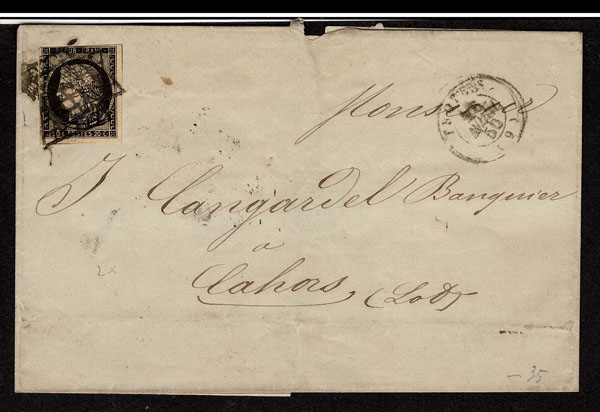 REPUB. FRANC.
POSTES 20 C
50
Monsieur
J. Cangardel Banquier
à
Cahors (Lot)
2x
- 35